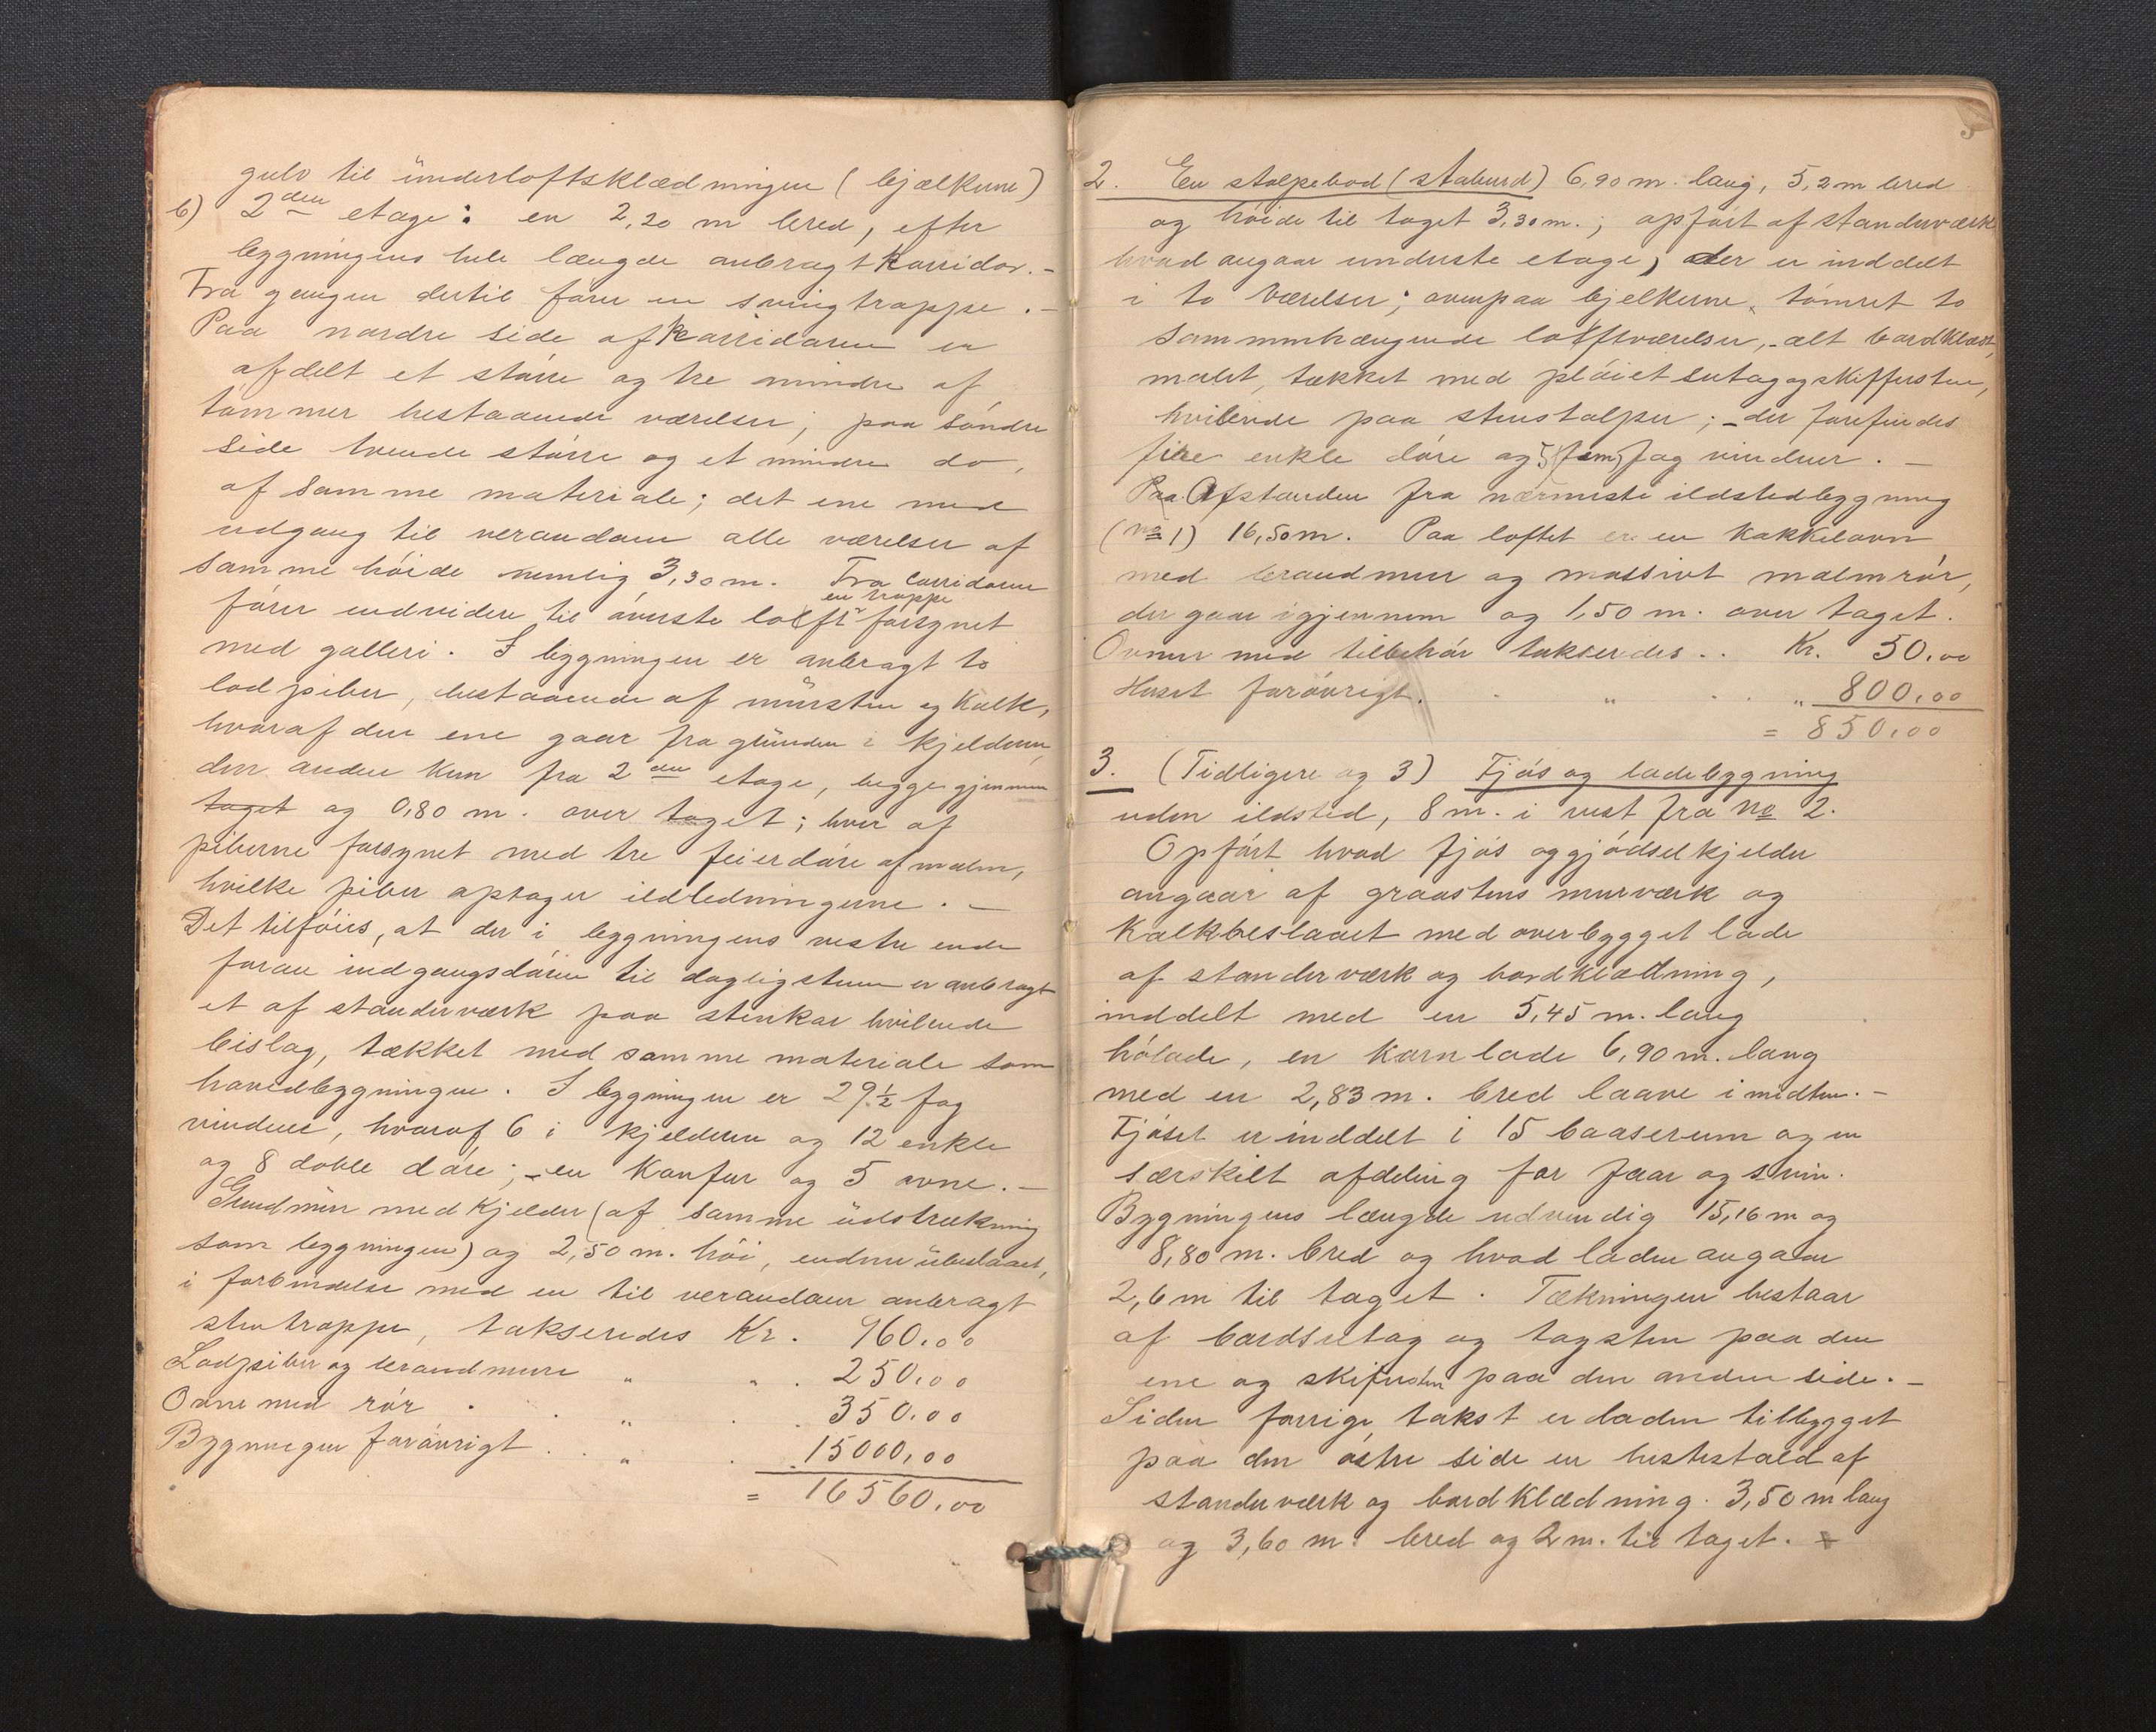 gulv til ünderloftsklædningen (bjælkerne)
b) 2den etage: en 2,20 m bred, efter
bygningens hele længde anbragt Korridor. –
Fra gangen dertil fører en svingtrappe. –
Paa nordre side af Korridoren er
afdelt et større og tre mindre af
tømmer bestaaende værelser; paa søndre
side tvende større og et mindre do,
af samme materiale; det ene med
udgang til verandaen alle værelser af
samme høide nemlig 3,30 m. Fra Corridoren
en trappe
fører endvidere til øverste loft forsynet
med galleri. I bygningen er anbragt to
lodpiber, bestaaende af mürsten og Kalk,
hvoraf den ene gaar fra gründen i kjelderen,
den anden kun fra 2den etage, begge gjennem
taget og 0,80 m. over taget; hver af
piberne forsynet med tre feierdøre af malm,
hvilke piber optager ildledningerne. –
Det tilføies, at der i bygningens vestre ende
foran indgangsdøren til dagligstuen er anbragt
et af standerværk paa stenkar hvilende
bislag, tækket med samme materiale som
hovedbygningen. I bygningen er 29 ½ fag
vinduer, hvoraf 6 i kjelderen og 12 enkle
og 8 doble døre; – en Komfur og 5 ovne. –
Grundmür med Kjelder (af samme üdstrekning
som bygningen) og 2,50 m. høi, endnu übeslaaet,
i forbindelse med en til verandaen anbragt
stentrappe, takseredes Kr. 960,00
Lodpiber og brandmure " " . 250,00
Ovne med rør . . " . . 350,00
Bygningen forøvrigt . . " . . 15000,00
= 16560,00
5
2. En stolpebod (staburd) 6,90 m. lang, 5,2 m bred
og høide til taget 3,30 m.; opført af standerværk
hvad angaar underste etage, der er inddelt
i to Værelser; ovenpaa bjelkerne tømret to
sammenhængende loftsværelser, – alt bordklædt,
malet, tækket med pløiet sutag og skiffersten,
hvilende paa stenstolper; – der forefindes
fire enkle døre og 5 (fem) fag vinduer. –
Paa Afstanden fra nærmeste ildstedbygning
(No 1) 16,50 m. Paa loftet er en Kakkelovn
med brandmur og massivt malmrør,
der gaar igjennem og 1,50 m. over taget.
Ovnen med tilbehør takseredes . . Kr. 50,00
Huset forøvrigt . . " . . " 800,00
= 850,00
3. (Tidligere og 3) Fjøs og ladebygning
uden ildsted, 8 m. i vest fra No 2.
Opført hvad fjøs og gjødselkjelder
angaar af graastens murværk og
Kalkbeslaaet med overbygget lade
af standerværk og bordklædning,
inddelt med en 5,45 m. lang
hølade, en Kornlade 6,90 m. lang
med en 2,83 m. bred laave i midten. –
Fjøset er inddelt i 15 baaserum og en
særskilt afdeling for faar og svin.
Bygningens længde udvendig 15,16 m og
8,80 m. bred og hvad laden angaar
2,6 m til taget. Tækningen bestaar
af bordsutag og tagsten paa den
ene og skifersten paa den anden side. –
Siden forrige takst er laden tilbygget
paa den østre side en hestestald af
standerværk og bordklædning 3,50 m lang
og 3,60 m. bred og 2 m. til taget.